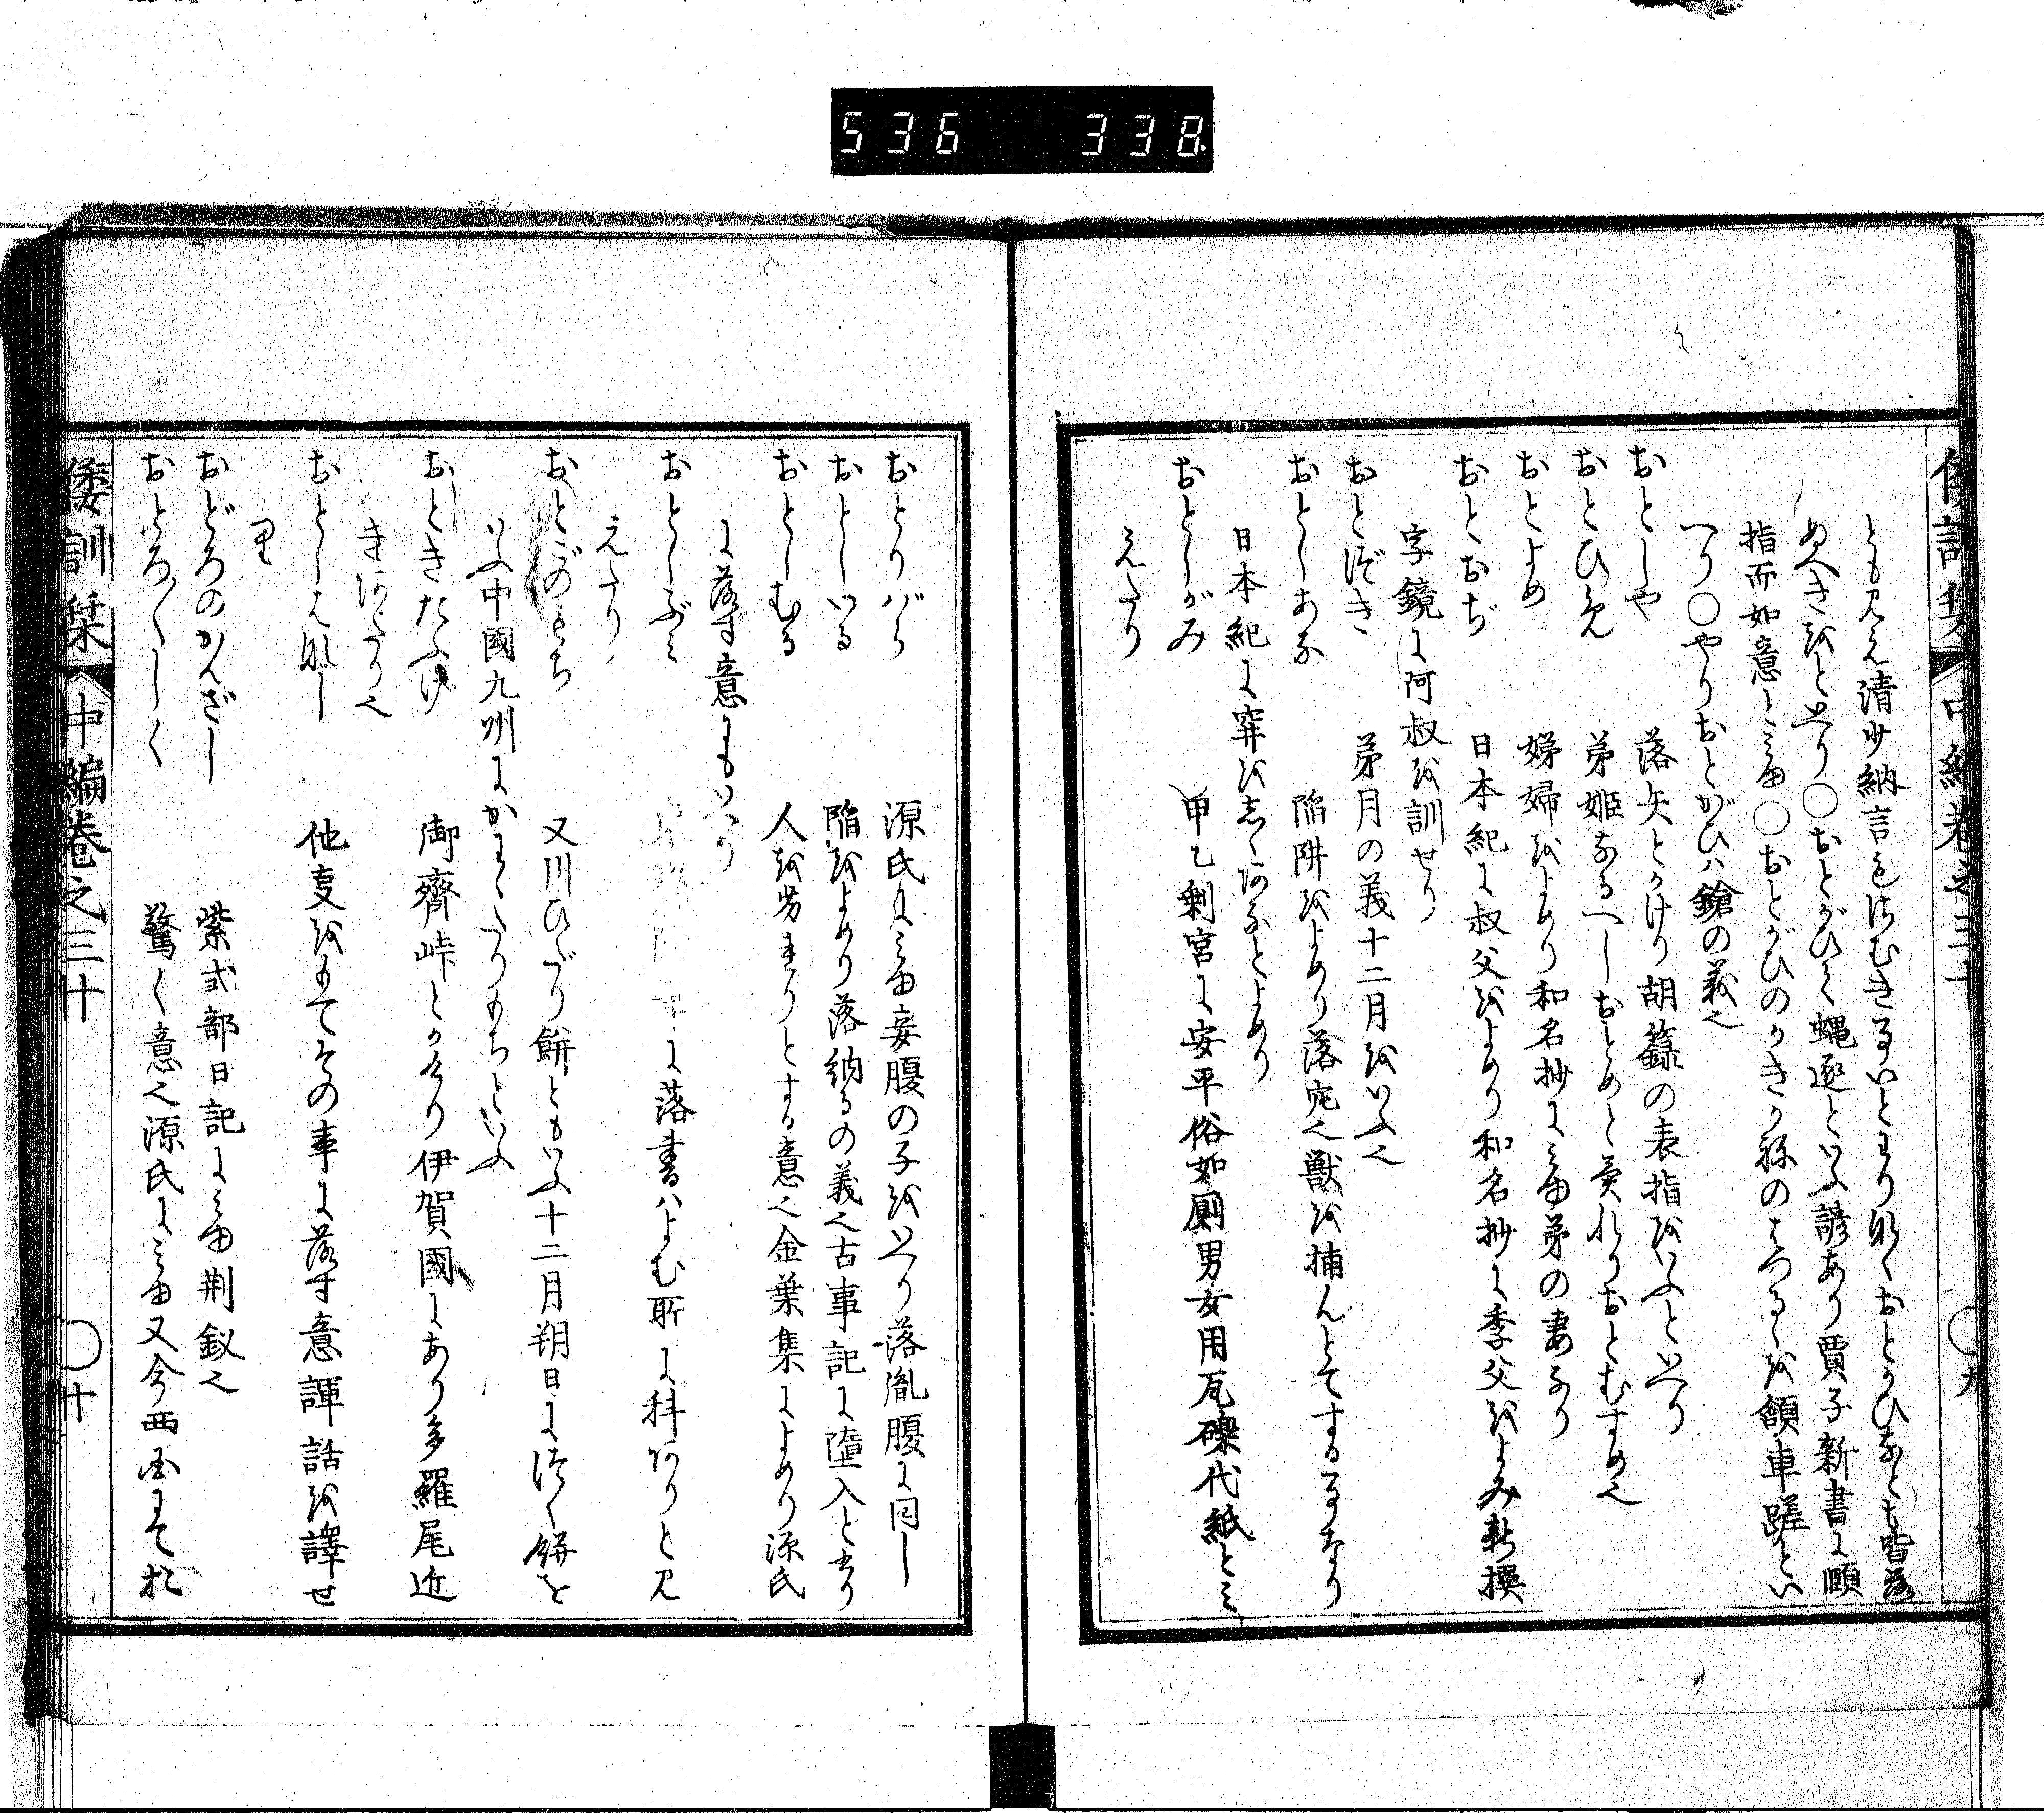 536 338
倭訓栞 中編卷之三十 ○九
とも見え清少納言もはむきるいとわりなくおとかひなとも皆落
ぬへきをといへり○おとがひて蠅逐といふ諺あり賈子新書に頤
指而如意とみゆ○おとがひのかきかねのはつるゝを頷車蹉とい
へり○やりおとがひハ鎗の義也
おとしや 落矢とかけり胡籙の表指をいふといへり
おとひめ 弟姫なるへしおとめと異れりおとむすめ也
おとよめ 娣婦をよめり和名抄にみゆ弟の妻なり
おとおぢ 日本紀に叔父をよめり和名抄に季父をよみ新撰
字鏡に阿叔を訓せり
おとづき 弟月の義十二月をいふ也
おとしあな 陥阱をよめり落穴也獣を捕んとてする事なり
日本紀に穽をしゝあなとよめり
おとしがみ 甲乙剩言に安平俗如厠男女用瓦礫代紙とみ
えたり
おとりばら 源氏にみゆ妾腹の子をいへり落胤腹に同し
おとしいる 陥をよめり落納るの義也古事記に墮入と書り
おとしむる 人を劣れりとする意也金葉集によめり源氏
に落す意にもいへり
おとしぶみ に落書ハよむ所に科ありと見
えたり
おとごのもち 又川ひたり餅ともいふ十二月朔日につく餅を
いふ中國九州にかわたりもちといふ
おときたふげ 御齊峠とかけり伊賀國にあり多羅尾近
きあたり也
おとしはなし 他事をもてその事に落す意諢話を譯せ
り
おどろのかんざし 紫式部日記にみゆ荆釵也
おどろ／＼しく 驚く意也源氏にみゆ又今西国にて於
倭訓栞 中編卷之三十 ○十